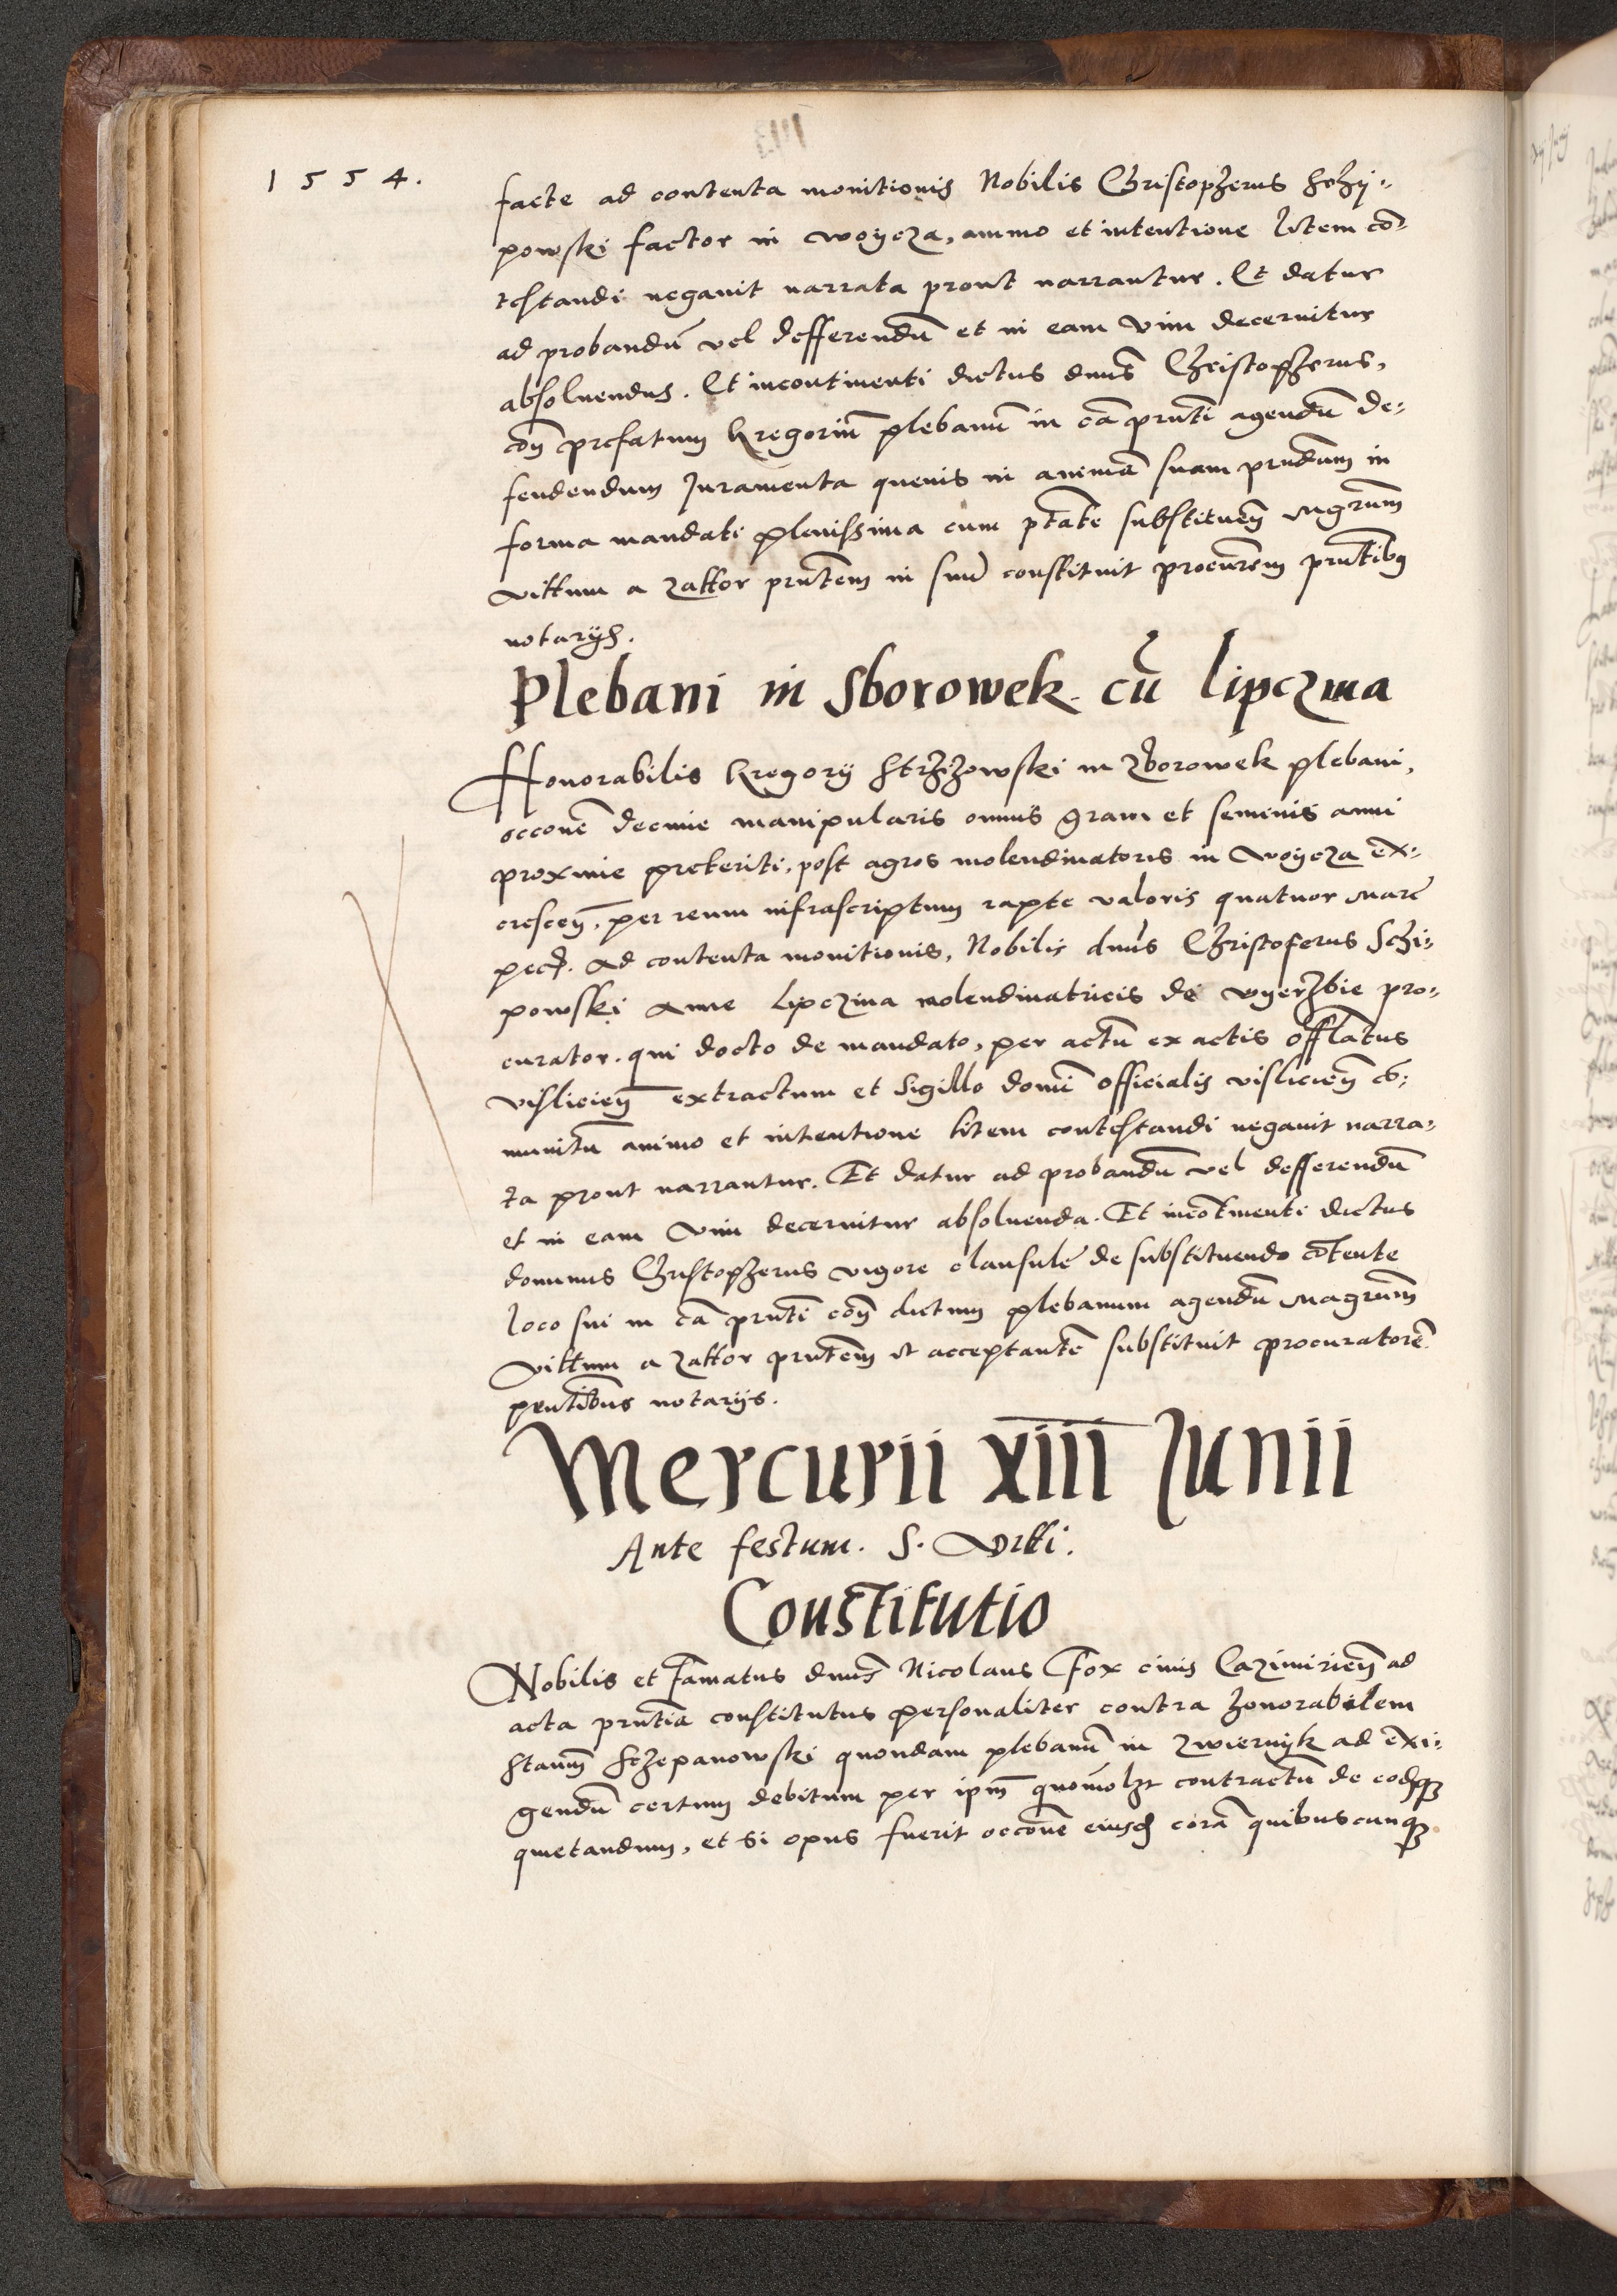 1554.
facte ad contenta monitionis Nobilis Christopherus Schy-
powski factor in Woycza, animo et intentione litem cō-
testandi negavit narrata prout narrantur. Et datur
ad probandū vel defferendū et in eam vim decernitur
absolvendus. Et incontinenti dictus dnus Christopherus,
cōn prefatum Gregoriū plebanū in cā prnti agendū de-
fendendum Juramenta quevis in animā suam prndum in
forma mandati plenissima cum ptāte substituen̄ Mgrum
Vittum a Zattor prntem in suū constituit procurem prntibus
notarijs.
Plebani in Sborowek cū Lipczina
Honorabilis Gregorij Strzizowski in Zborowek plebani,
occone decime manipularis omnis grani et seminis anni
proxime preteriti, post agros molendinatoris in Woycza ex-
crescen̄, per reum infrascriptum rapte valoris quatuor marc
pecu. Ad contenta monitionis, Nobilis dnus Christoferus Schi-
powski Anne Lipczina molendinatricis de Wyerzbie pro-
curator. qui docto de mandato, per actū ex actis offlatus
Vislicien̄ extractum et Sigillo domi officialis Vislicien̄ cō-
munitū animo et intentione litem contestandi negavit narra-
ta prout narrantur. Et datur ad probandū vel defferendū
et in eam vim decernitur absolvenda. Et incōtinenti dictus
dominus Christopherus vigore clausule de substituendo cōtente
loco sui in cā prnti cōn dictum plebanum agendū Magrum
Vittum a Zattor prntem et acceptante substituit procuratorē
prntibus notarijs.
Mercurii XIII Junii
Ante festum. S. Vitti.
Constitutio
Nobilis et Famatus dnus Nicolaus Fox civis Cazimirien̄ ad
acta prntia constitutus personaliter contra honorabilem
Stanm Sczepanowski quondam plebanū in Zwiernyk ad exi-
gendū certum debitum per ipm quomolzt contractū de eodqz
quietandum, et si opus fuerit occone eiusd corā quibuscunqz